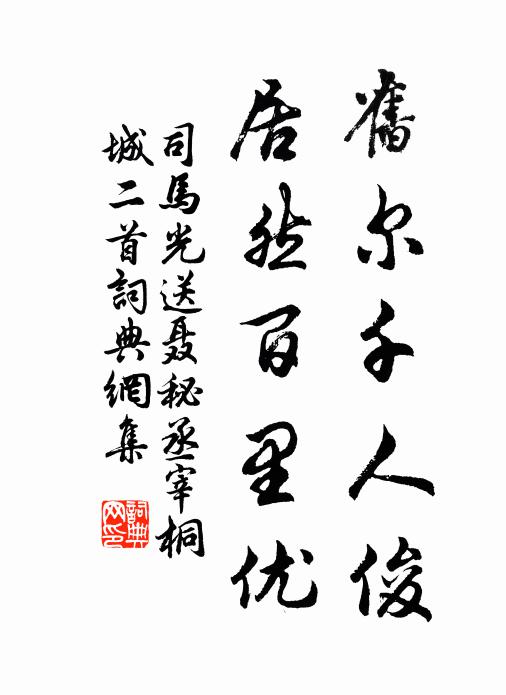 奮尔千人俊
居然百里优
司馬光送聂秘丞宰桐
城二首詞典網集
詞典
网印